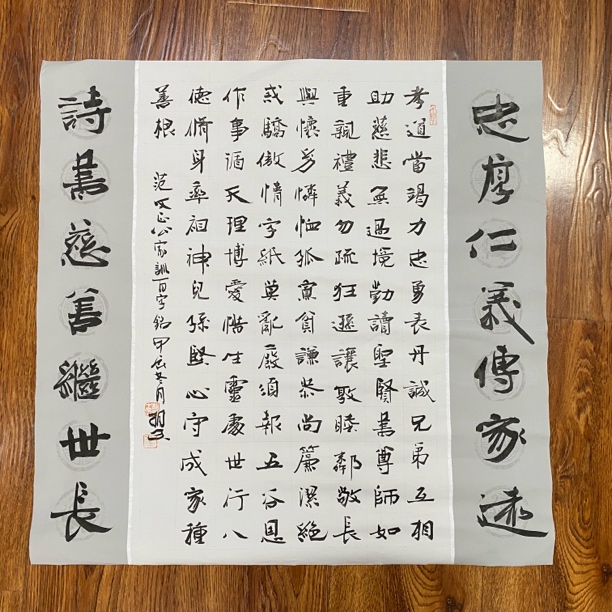 忠厚仁義傳家遠
孝道當竭力忠勇表丹誠兄弟互相
助慈悲無過境勤讀聖賢書尊師如
重親禮義勿疏狂遜讓敦睦鄰敬長
與懷幼憐恤孤寡貧謙恭尚簾潔絕
戒驕傲情字紙莫亂廢須報五谷恩
作事循天理博愛惜生靈處世行八
德脩身率祖神兒孫堅心守成家種
善根
范文正公家訓百字銘 甲辰冬月
詩書慈善繼世長